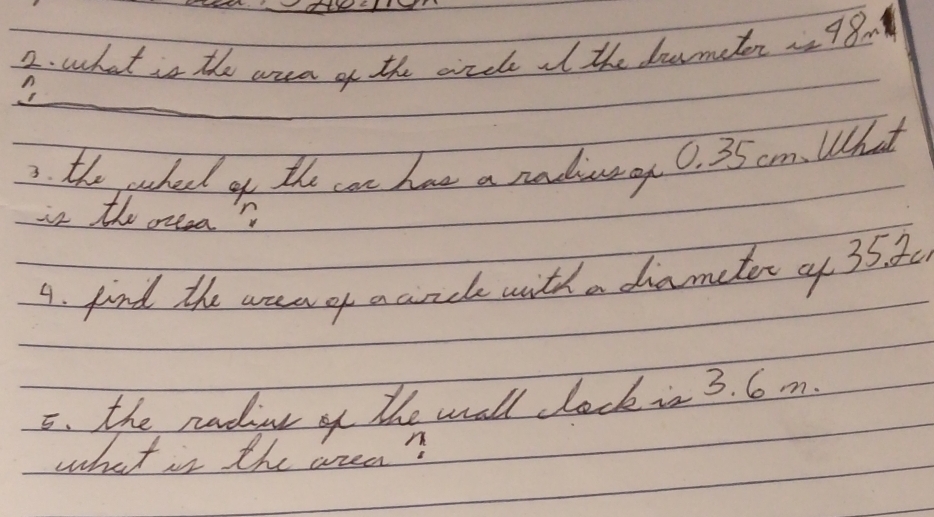 2. what is the area of the circle if the diameter is 48m
?
3. the wheel of the car has a radius of 0.35 cm. What
is the area?
4. find the area of a circle with a diameter of 35.2cm
5. the radius of the wall clock is 3.6 m.
what is the area?